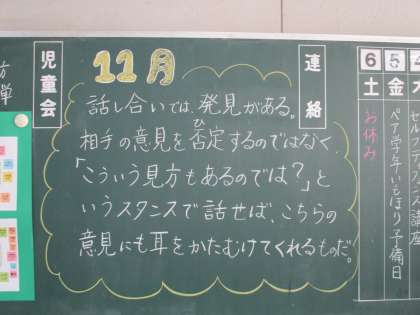 児童会
11月
連絡
話し合いでは、発見がある。
相手の意見を否定するのではなく、
ひ
「こういう見方もあるのでは?」と
いうスタンスで話せば、こちらの
意見にも耳をかたむけてくれるものだ。
6 5
土 金
お休み
ペア学年いもほり予備日
セルフディフェンス講座